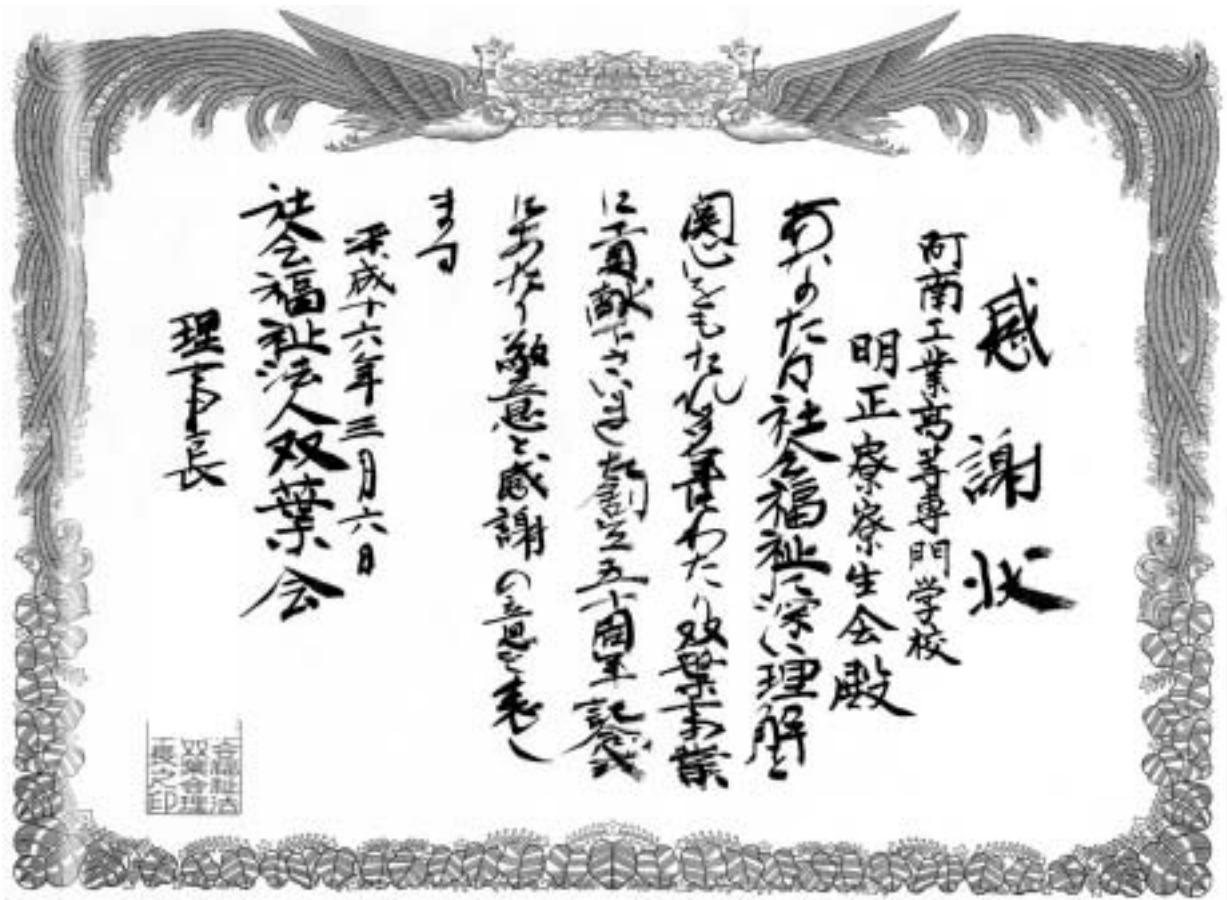 感謝状
阿南工業高等専門学校
明正寮寮生会殿
あなたは社会福祉に深い理解と
関心をもたれ多年にわたり双葉事業
に貢献下さいました創立五十周年記念式
にあたり敬意と感謝の意を表し
ます
平成十六年三月六日
社会福祉法人双葉会
理事長
会福祉法
双葉会理
長之印